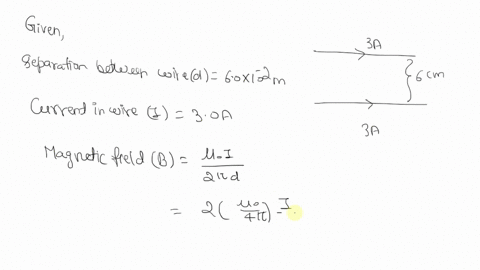 Given,
Separation between wire(d) = 6.0×10⁻²m
Current in wire (I) = 3.0A
Magnetic field (B) = μ₀I / 2πd
= 2(μ₀/4π) I
3A
6cm
3A